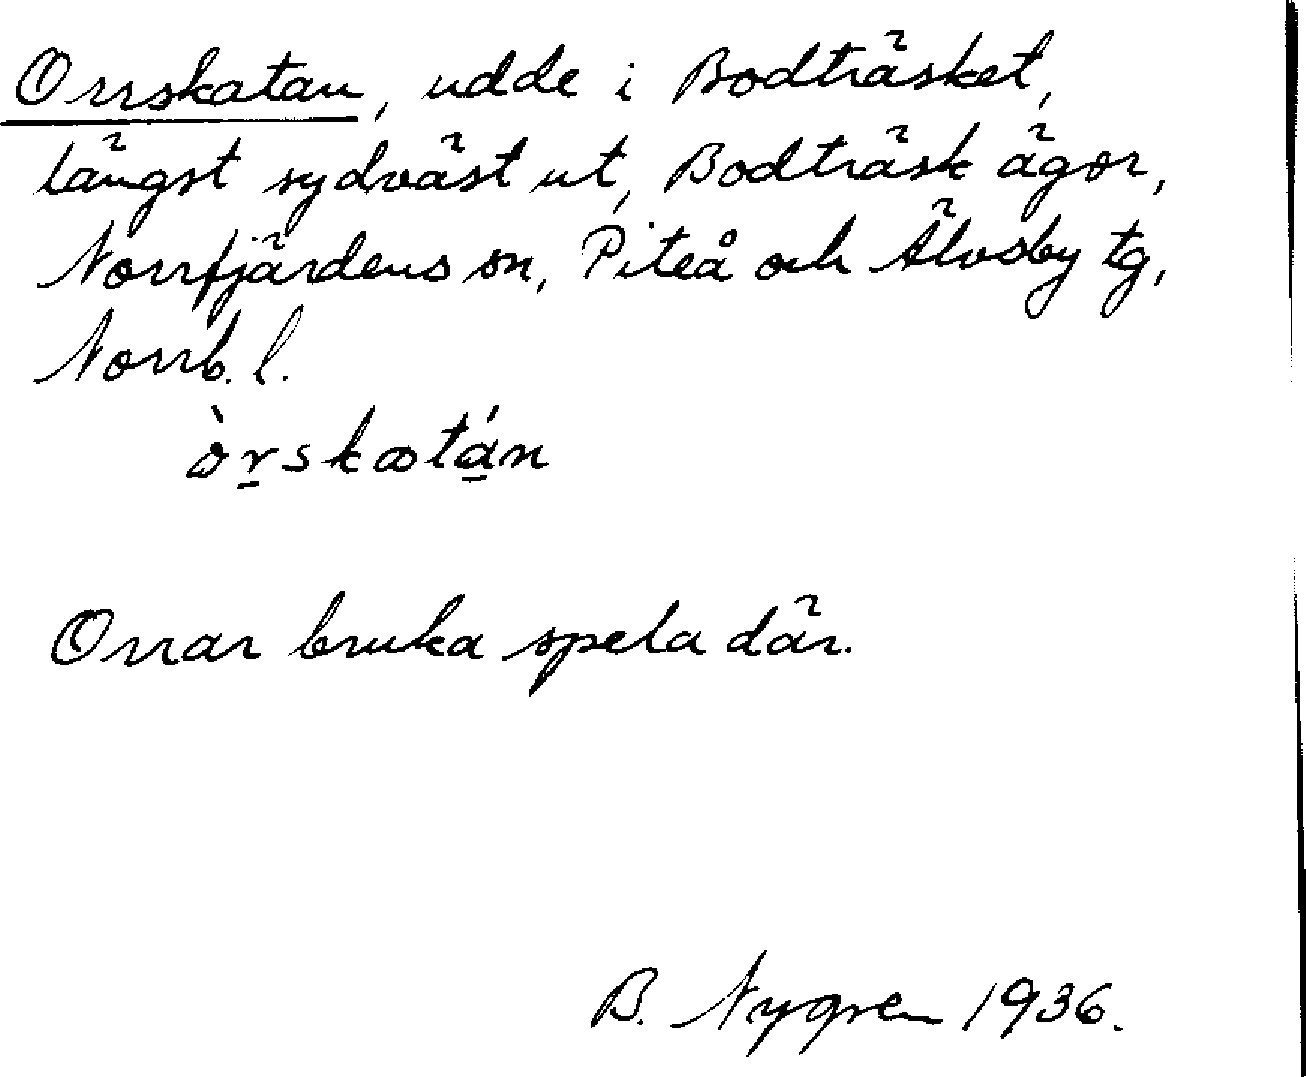 Orrskatan, udde i Bodträsket,
längst sydväst ut, Bodträsk ägor,
Norrfjärdens sn, Piteå och Älvsby tg,
Norrb. l.
òr̠skatá̠n
Orrar bruka spela där.
B. Nygren 1936.